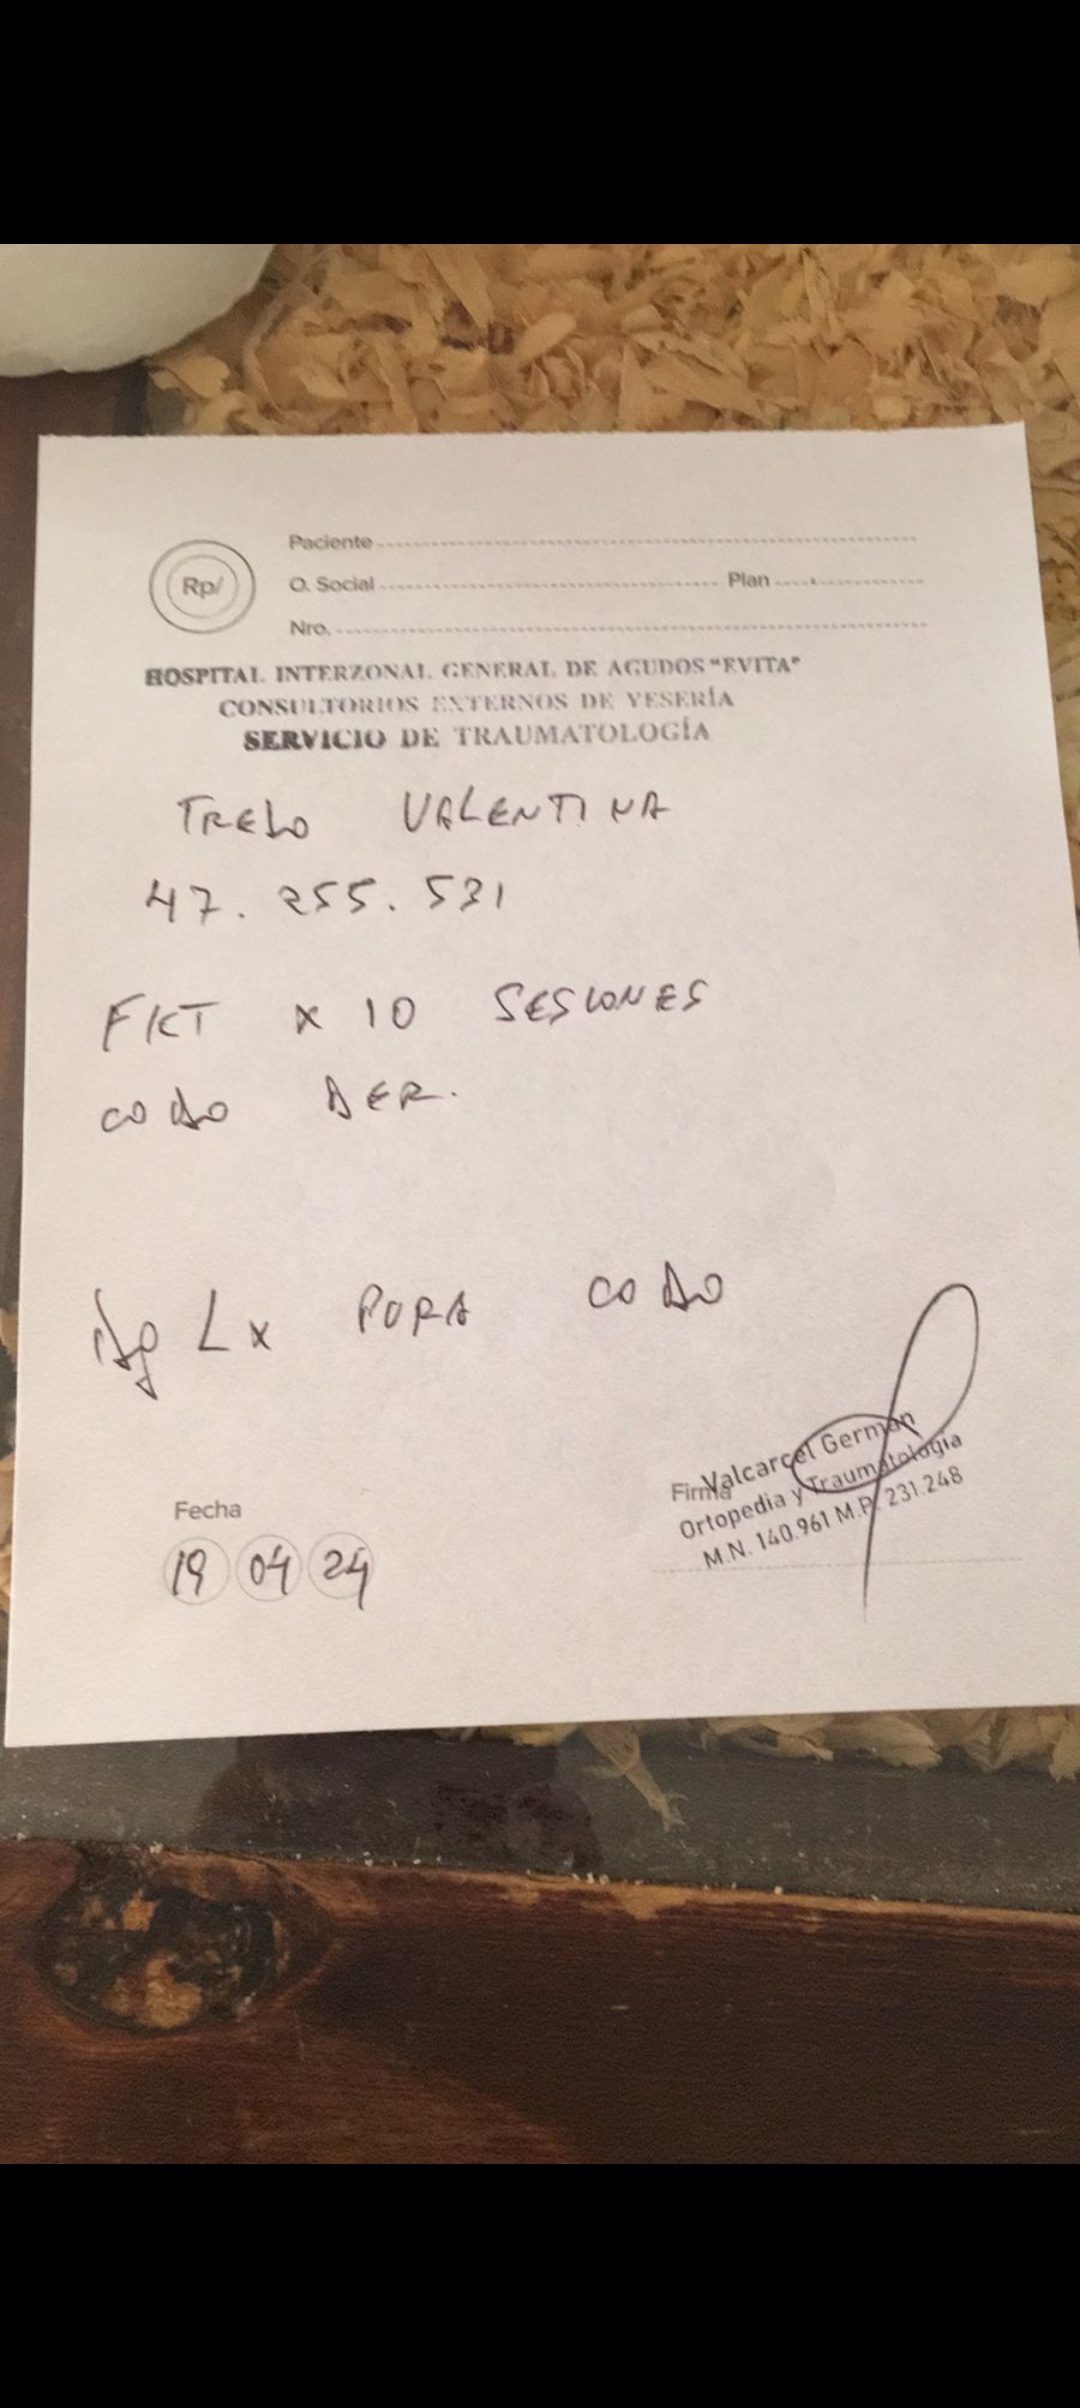 Rp/
Paciente
O. Social Plan
Nro.
HOSPITAL INTERZONAL GENERAL DE AGUDOS "EVITA"
CONSULTORIOS EXTERNOS DE YESERÍA
SERVICIO DE TRAUMATOLOGÍA
VALENTINA
47.255.531
FKT x 10 SESIONES
CODO DER.
Lx CODO
Fecha
19 04 24
Firma
Valcarcel Germán
Ortopedia y Traumatología
M.N. 140.961 M.P. 231.248